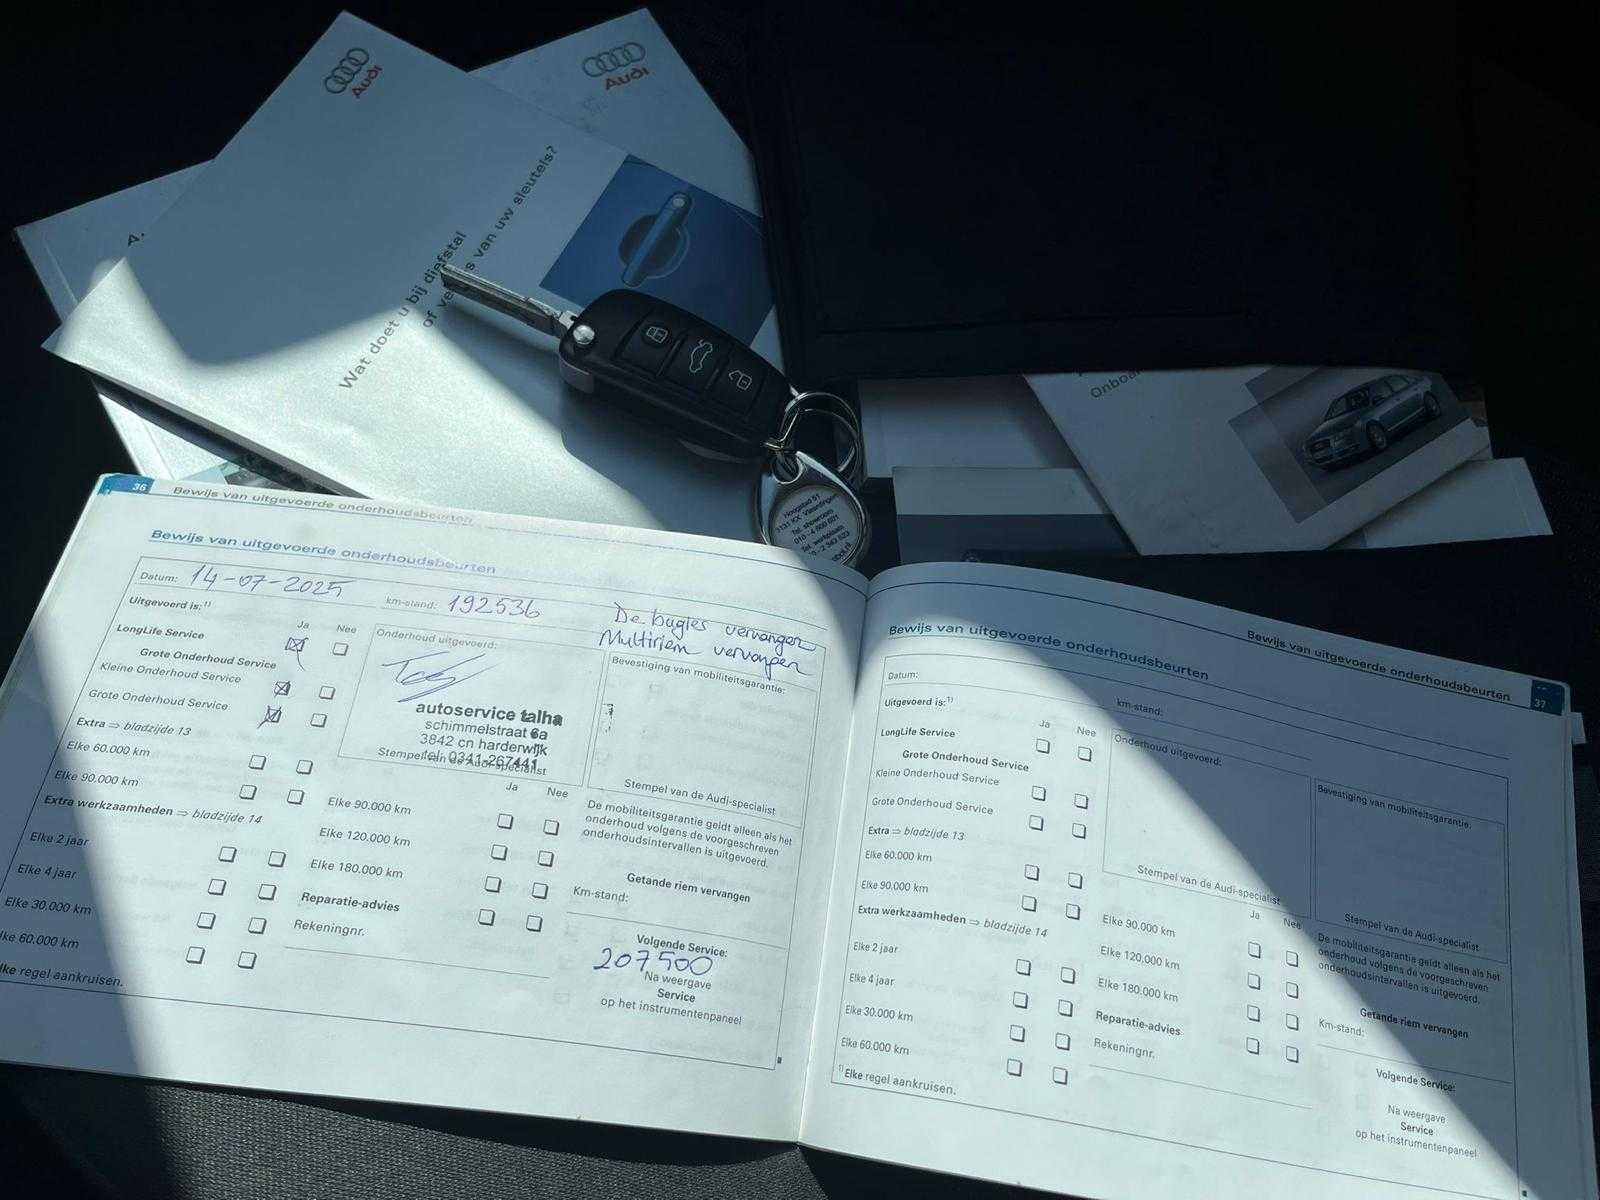 Audi
Audi
Wat doet u bij diefstal
van uw sleutels?
A.
Onboa
Hoogstad 51
3131 KX Vlaardingen
Tel. showroom
010 - 4 600 601
Tel. werkplaats
36 Bewijs van uitgevoerde onderhoudsbeurten
Bewijs van uitgevoerde onderhoudsbeurten
Datum: 14-07-2025 km-stand: 192536
De bugies vervangen
Multiriem vervangen
Uitgevoerd is:1)
Ja Nee
LongLife Service
Grote Onderhoud Service
Kleine Onderhoud Service
Grote Onderhoud Service
Extra ⇒ bladzijde 13
Elke 60.000 km
Elke 90.000 km
Extra werkzaamheden ⇒ bladzijde 14
Elke 2 jaar
Elke 4 jaar
Elke 30.000 km
lke 60.000 km
lke regel aankruisen.
Onderhoud uitgevoerd:
autoservice talha
schimmelstraat 6a
3842 cn harderwijk
tel: 0341-267441
Stempel van de Audi-specialist
Ja Nee
Elke 90.000 km
Elke 120.000 km
Elke 180.000 km
Reparatie-advies
Rekeningnr.
Bevestiging van mobiliteitsgarantie:
Stempel van de Audi-specialist
De mobiliteitsgarantie geldt alleen als het
onderhoud volgens de voorgeschreven
onderhoudsintervallen is uitgevoerd.
Getande riem vervangen
Km-stand:
Volgende Service:
207500
Na weergave
Service
op het instrumentenpaneel
Bewijs van uitgevoerde onderhoudsbeurten 37
Bewijs van uitgevoerde onderhoudsbeurten
Datum:
km-stand:
Uitgevoerd is:1)
Ja Nee
LongLife Service
Grote Onderhoud Service
Kleine Onderhoud Service
Grote Onderhoud Service
Extra ⇒ bladzijde 13
Elke 60.000 km
Elke 90.000 km
Extra werkzaamheden ⇒ bladzijde 14
Elke 2 jaar
Elke 4 jaar
Elke 30.000 km
Elke 60.000 km
1) Elke regel aankruisen.
Onderhoud uitgevoerd:
Stempel van de Audi-specialist
Ja Nee
Elke 90.000 km
Elke 120.000 km
Elke 180.000 km
Reparatie-advies
Rekeningnr.
Bevestiging van mobiliteitsgarantie:
Stempel van de Audi-specialist
De mobiliteitsgarantie geldt alleen als het
onderhoud volgens de voorgeschreven
onderhoudsintervallen is uitgevoerd.
Getande riem vervangen
Km-stand:
Volgende Service:
Na weergave
Service
op het instrumentenpaneel